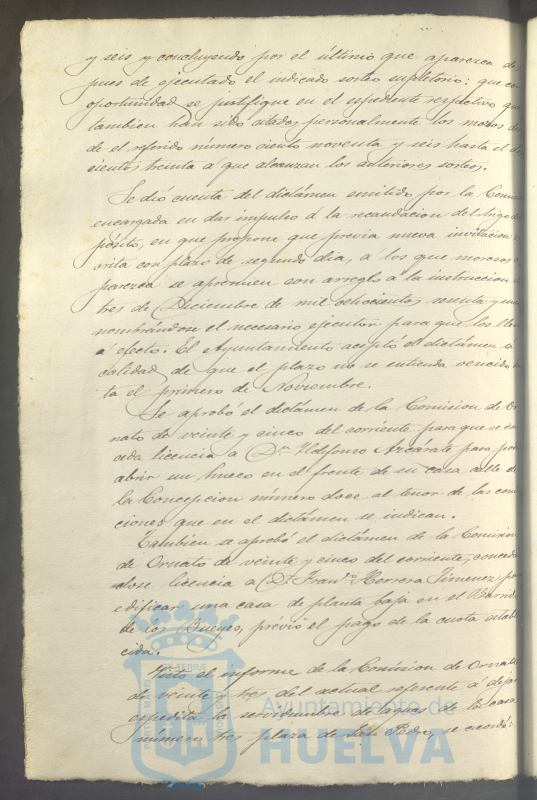 y seis y concluyendo por el último que aparezca des
pues de ejecutado el indicado sorteo supletorio: que con
oportunidad se justifique en el espediente respectivo que
tambien han sido citados personalmente los mozos des
de el referido número ciento noventa y seis hasta el dos
cientos treinta a que alcanzan los anteriores sorteos.
Se dió cuenta del dictámen emitido por la Comi
encargada en dar impulso á la recaudacion del trigo del
pósito, en que propone que prévia nueva invitacion
crita con plazo de segundo dia, a los que morosos
parezca se apremien con arreglo a la instruccion
tres de Diciembre de mil ochocientos sesenta y
nombrándose el necesario ejecutor para que los lle
á efecto. El Ayuntamiento aceptó el dictámen
calidad de que el plazo no se entienda vencido
ta el primero de Noviembre.
Se aprobó el dictámen de la Comision de Or
nato de veinte y cinco del corriente para que se con
ceda licencia a Dn. Ildefonso Azcárate para po
abrir un hueco en el frente de su casa calle de
la Concepcion número doce al tenor de las con
ciones que en el dictámen se indican.
Tambien se aprobó el dictámen de la Comision
de Ornato de veinte y cinco del corriente, concedi
dose licencia a Dn. Franco. Herrera Jimenez pa
edificar una casa de planta baja en el Barrio
de los Bueyes, prévio el pago de la cuota estable
cida.
Visto el informe de la Comision de Ornato
de veinte y tres del actual referente á dejar
espedita la servidumbre de aguas de la casa
número tres plaza de San Pedro, se acordó:
Ayuntamiento de
HUELVA